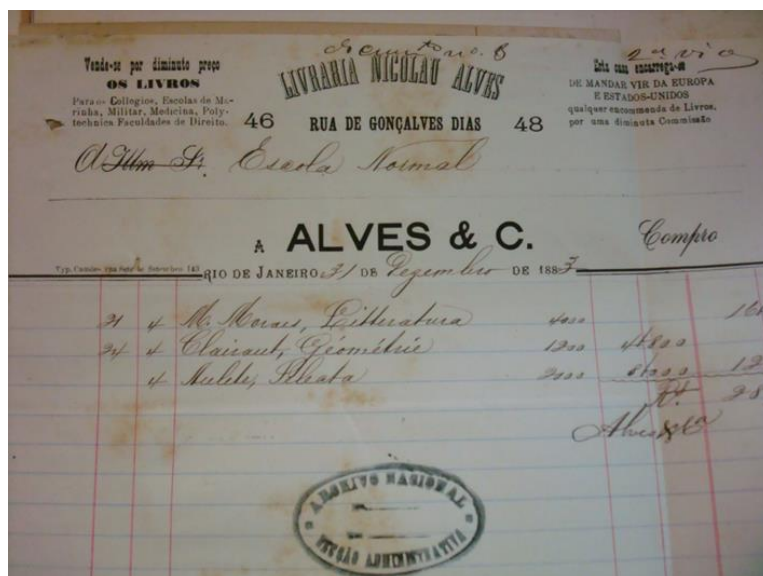 Documento no. 8
2ª via
Vende-se por diminuto preço
OS LIVROS
Para os Collegios, Escolas de Ma-
rinha, Militar, Medicina, Poly-
technica Faculdades de Direito.
LIVRARIA NICOLAU ALVES
46 RUA DE GONÇALVES DIAS 48
Esta casa encarrega-se
DE MANDAR VIR DA EUROPA
E ESTADOS-UNIDOS
qualquer encommenda de Livros,
por uma diminuta Commissão
A Illm Sr. Escola Normal
A ALVES & C. Compro
RIO DE JANEIRO 31 DE Dezembro DE 1883
31 4 M. Moraes, Litteratura 4000 16
24 4 Clairaut, Géométrie 1200 4800
4 Aulete, Selecta 2000 8000 12
Rs. 28
Alves & Cª
ARCHIVO NACIONAL
SECÇÃO ADMINISTRATIVA